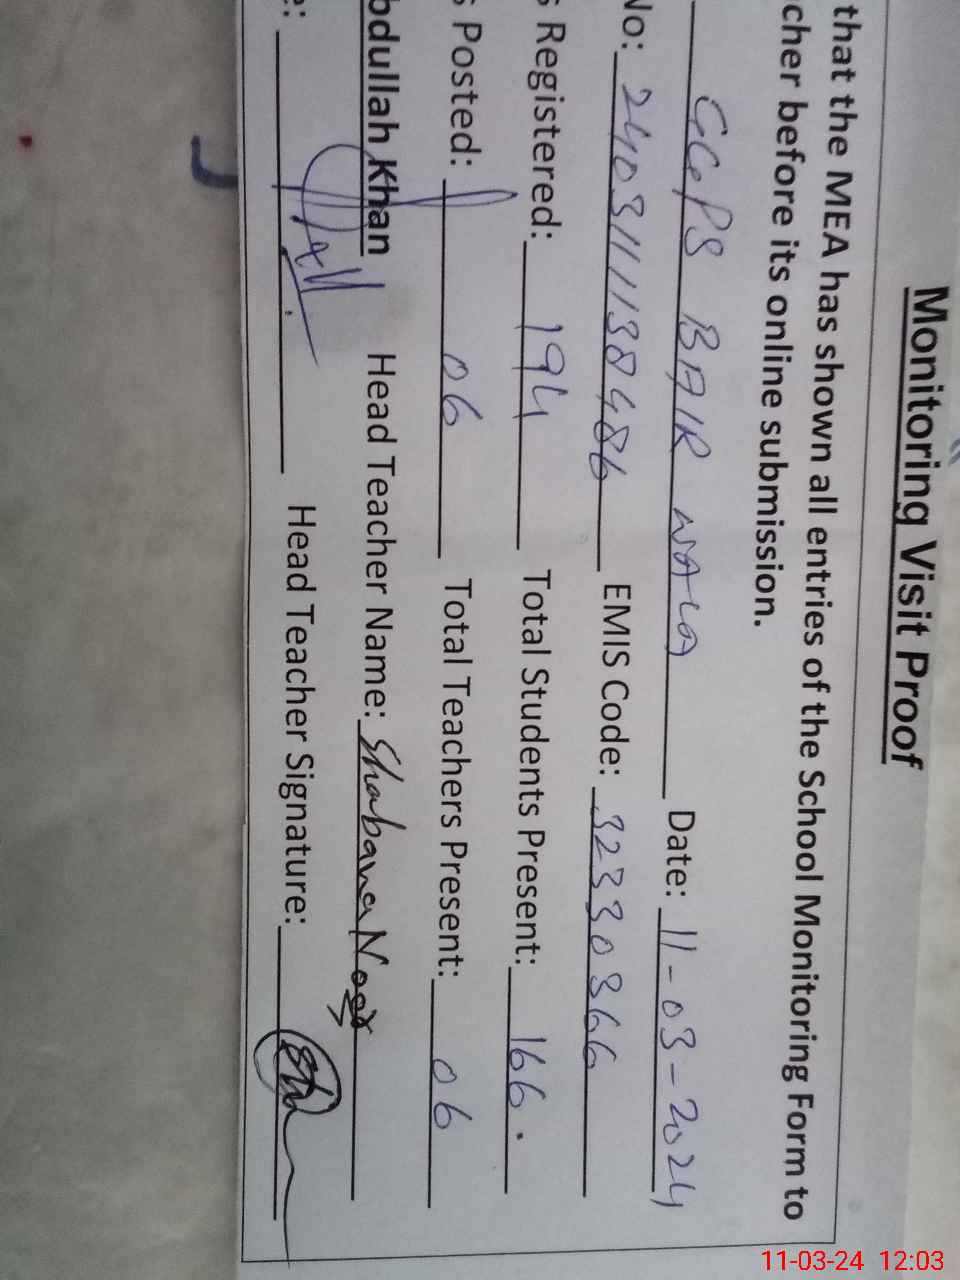 Monitoring Visit Proof
that the MEA has shown all entries of the School Monitoring Form to
cher before its online submission.
GGPS BAIR WALA Date: 11-03-2024
No: 2403111138486 EMIS Code: 32330366
s Registered: 194 Total Students Present: 166.
s Posted: 06 Total Teachers Present: 06
bdullah Khan Head Teacher Name: Shabana Noor
e: Head Teacher Signature:
11-03-24 12:03